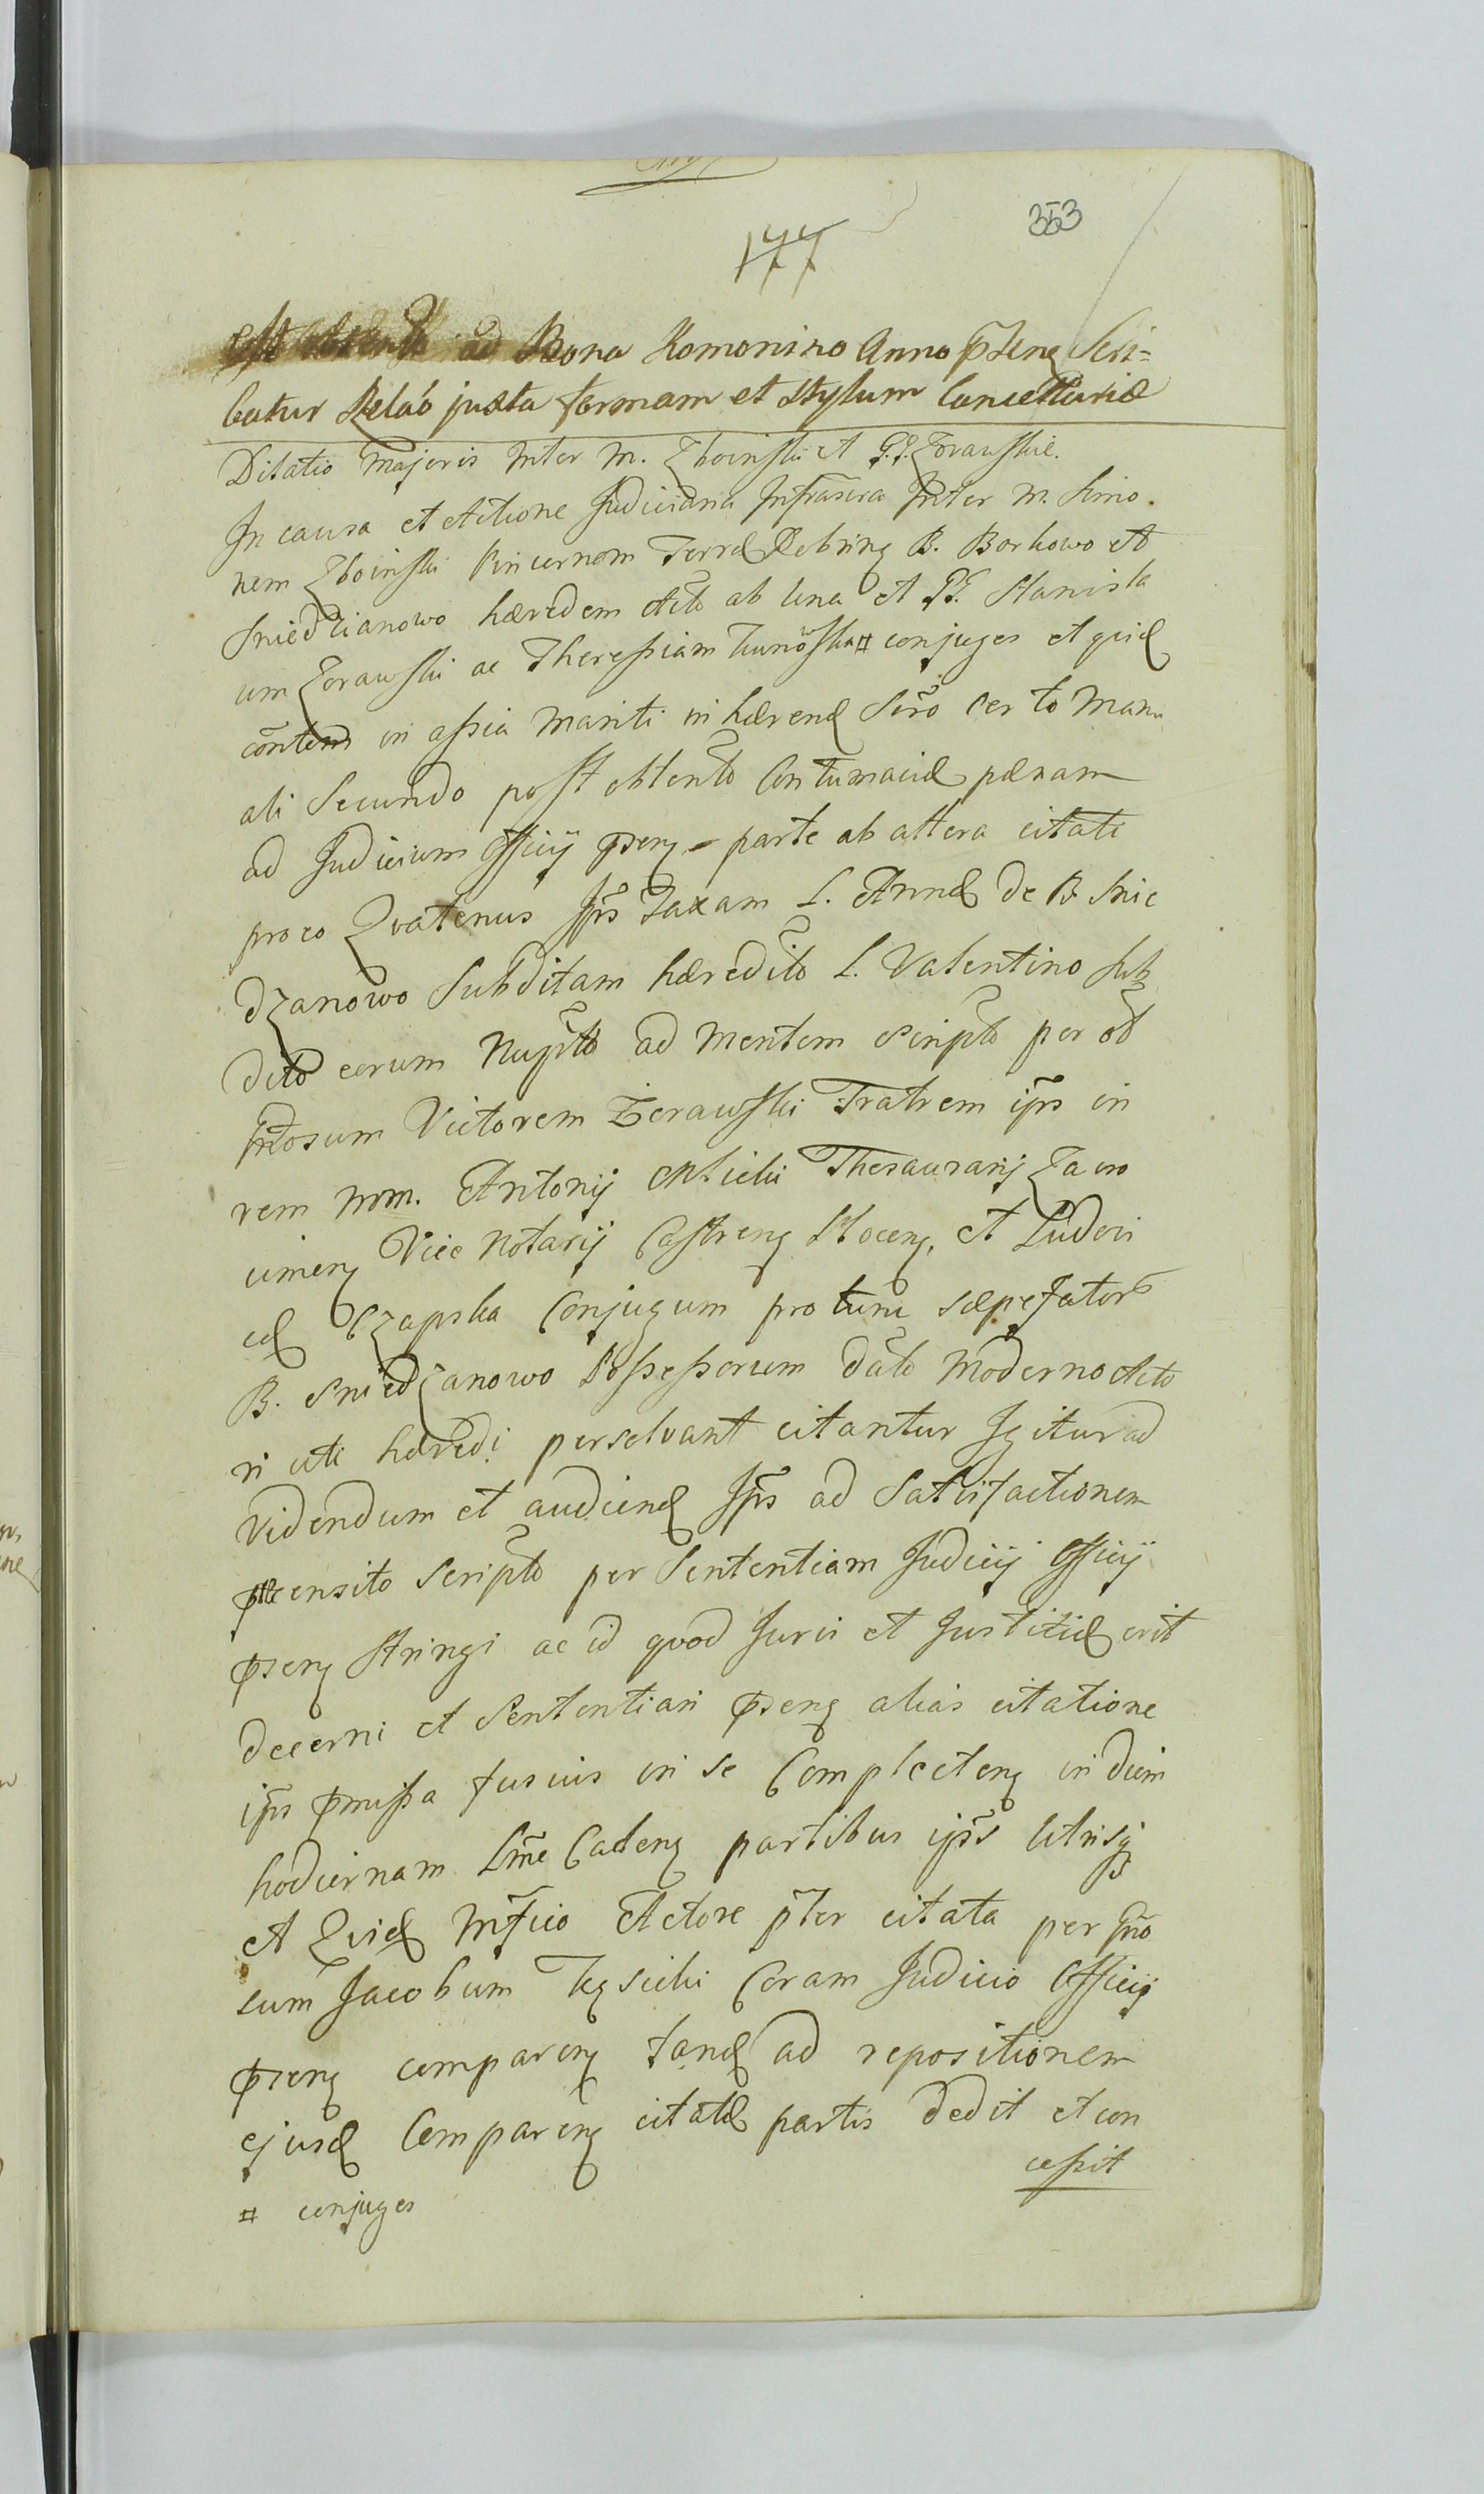 353
177
ad Bona Komonino Anno p̃senȝ Scri=
batur Relaõ juxta formam et stylum Cancellariæ
Dilatio Majoris Inter M. Zboinski et G.G. Zorawskie.
In causa et Actione Judiciaria Infrascra Inter M. Simo
nem Zboinski Pincernam Terræ Dobrinȝ B. Borkowo et
Sniedzianowo hæredem ab una et GG. Stanisla
um Zorawski ac Theressiam conjuges et quid
in assia Mariti inhærend Scr̃o Certo Manu
ali Secundo post obtent̃o Contumaciæ pænam
ad Judicium Officij p̃senȝ parte ab altera citate
pro eo Quatenus Ip̃s Taxam L. Annæ de B. Snie
dzanowo Subditam hæredit̃o L. Valentino Sub
dito eorum Nupt̃o ad Mentem Script̃o per
Victorem Zerawski Fratrem ip̃s in
rem Mm. Antonij Thesaurarij Zawo
Vice Notarij Castrenȝ Plocenȝ, et Ludovi
cæ Czapska Conjugum pro tunc sæpefator̃
B. Sniedzanowo Possessorum dat̃o Moderno Acto
ri uti hæredi persolvant citantur Igitur ad
Videndum et audiend Ip̃s ad Satisfactionem
præensito Script̃o per Sententiam Judicij Officij
p̃senȝ Stringi ac id quod Juris et Justitiæ erit
decerni et Sententiari p̃senȝ alias citatione
ip̃s p̃missa fusius in se Complectenȝ in diem
hodiernam L̃me Cadenȝ partibus ip̃s Utrisqȝ
et Quid M̃fico Actore p̃ter citata per G̃no
sum Jacobum Coram Judicio Officij
p̃senȝ comparenȝ Tand ad repositionem
ejusd Comparenȝ citatæ partis dedit et con
cessit
# conjuges